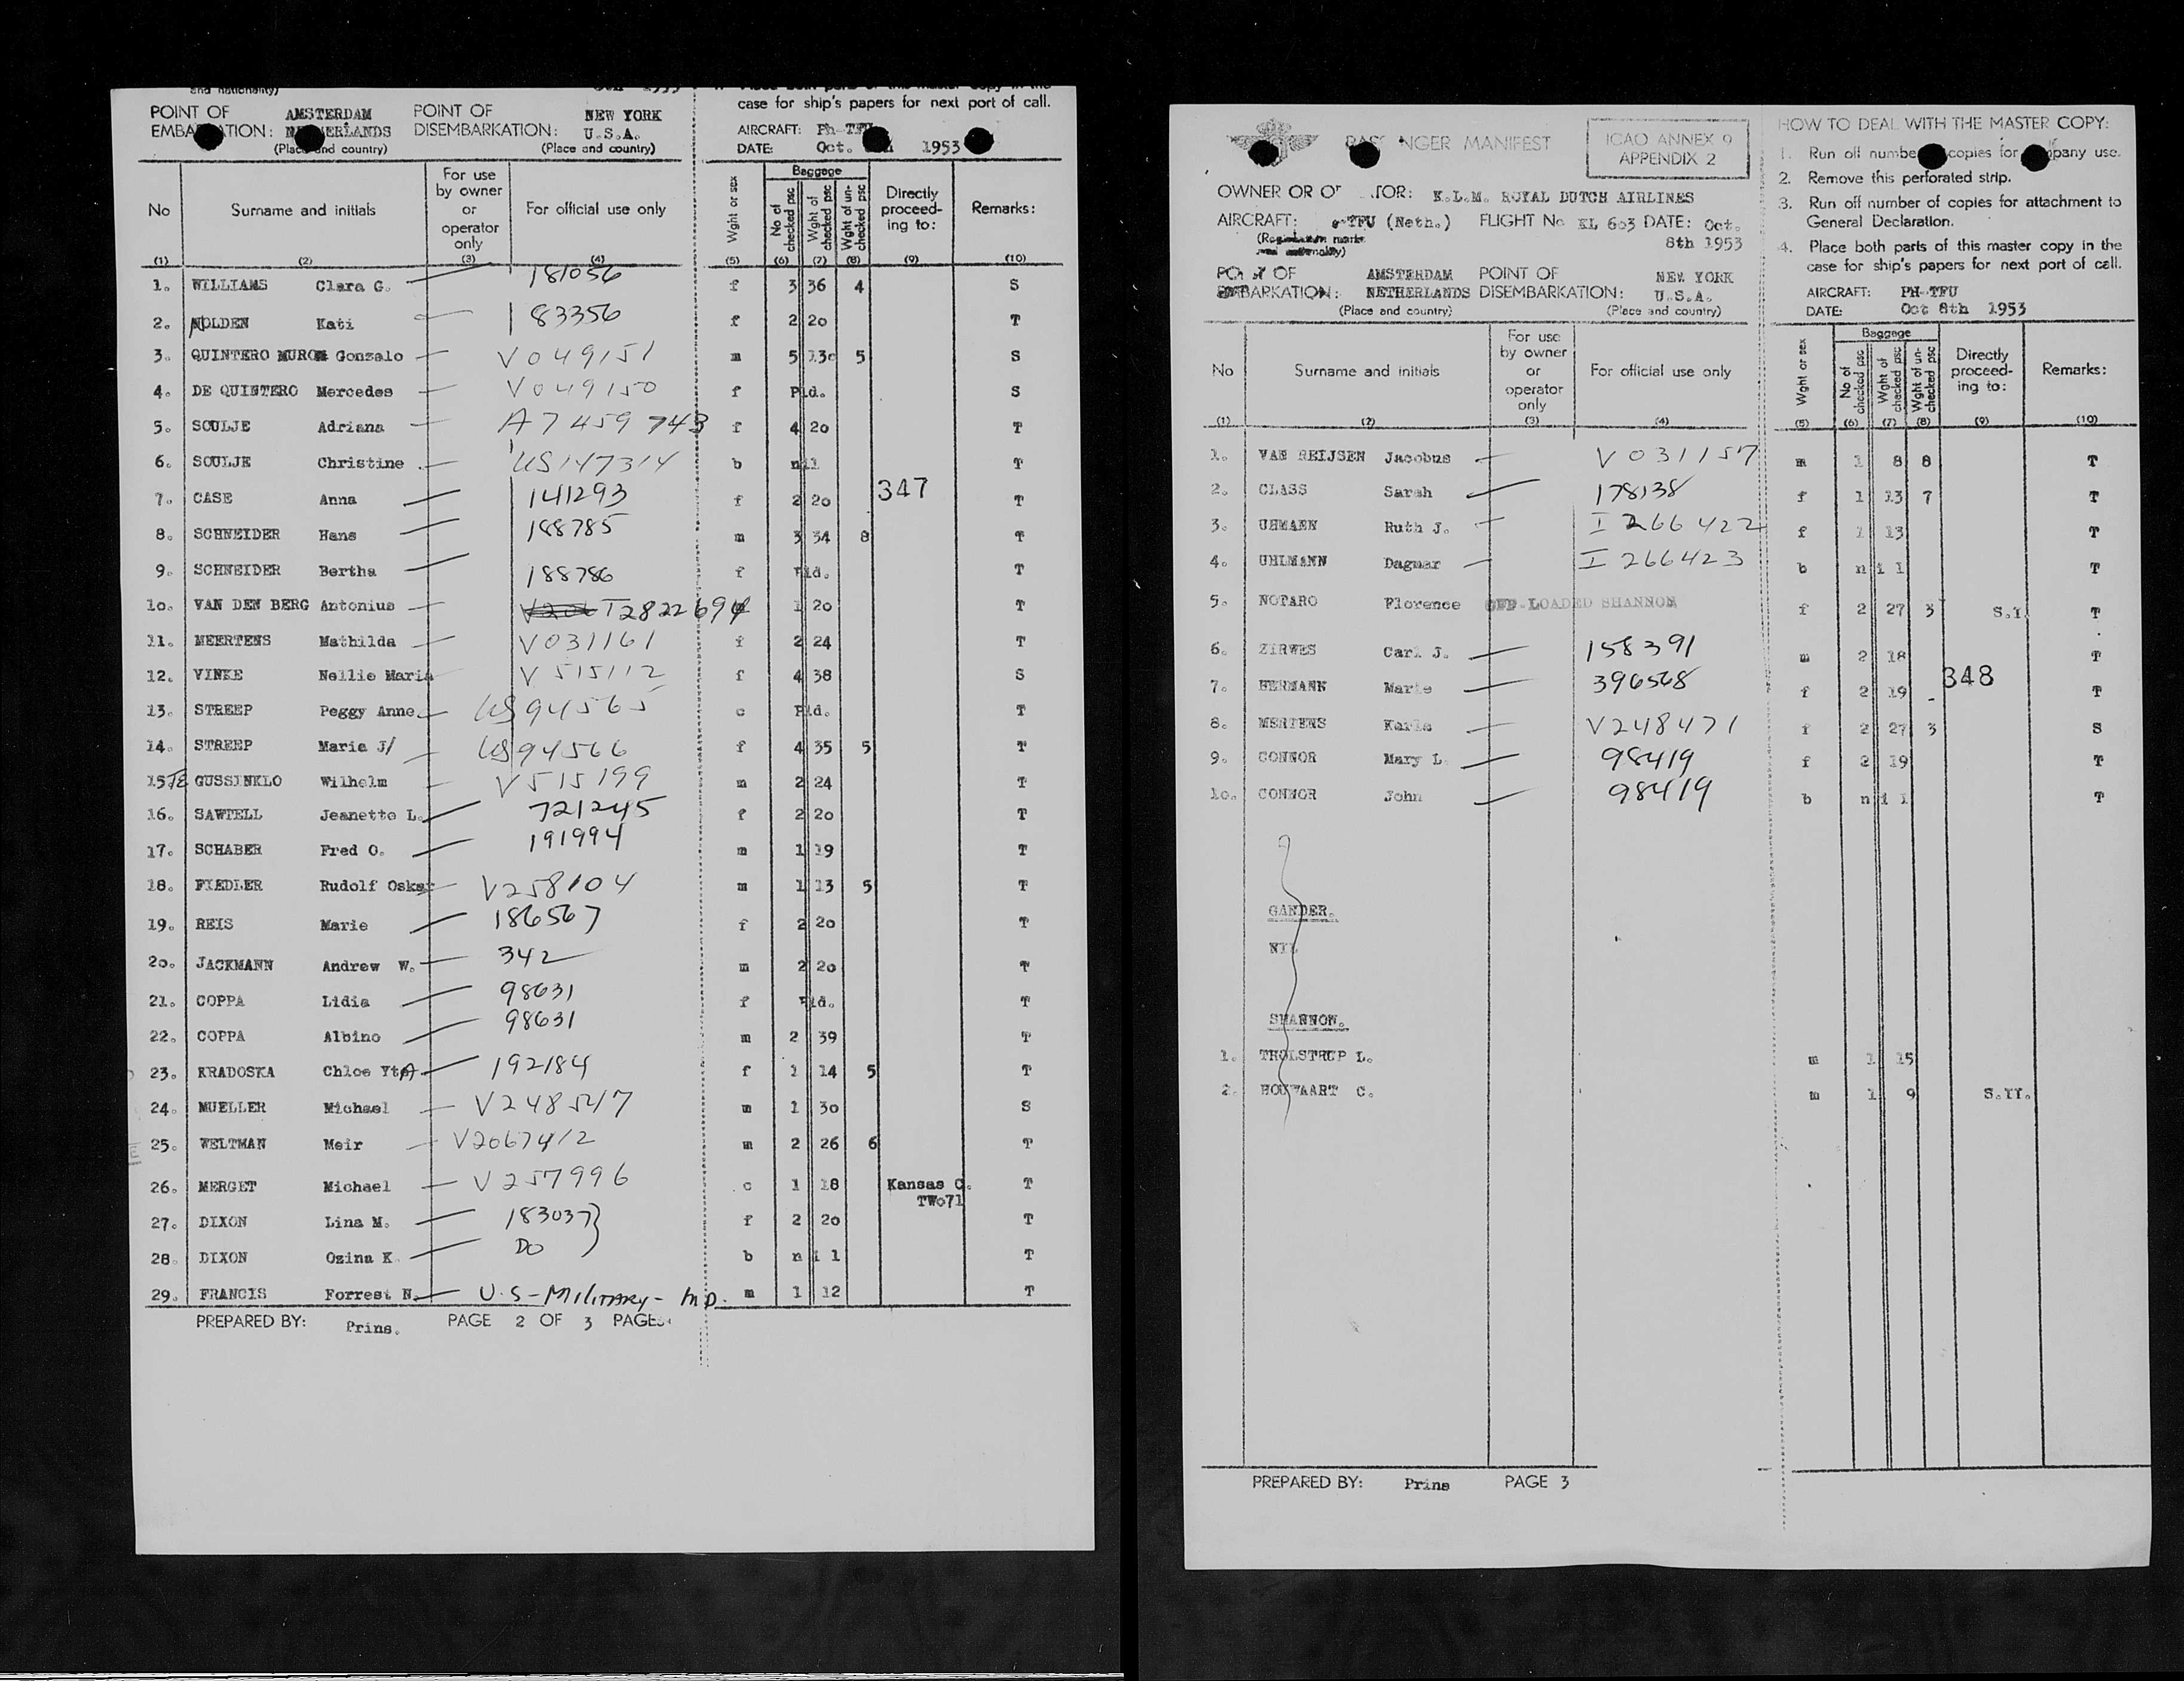 and nationality)
case for ship's papers for next port of call.
POINT OF AMSTERDAM POINT OF NEW YORK
DISEMBARKATION: U.S.A.
(Place and country) (Place and country)
AIRCRAFT:
DATE: Oct. 1953
No Surname and initials For use by owner or operator only For official use only Wght or sex Baggage No of checked psc Wght of checked psc Wght of un-checked psc Directly proceed-ing to: Remarks:
(1) (2) (3) (4) (5) (6) (7) (8) (9) (10)
1. WILLIAMS Clara G. 181056 f 3 36 4 S
2. NOLDEN Kati 183356 f 2 20 T
3. QUINTERO Gonzalo V049151 m 5 130 5 S
4. DE QUINTERO Mercedes V049150 f Pld. S
5. SOULJE Adriana A7459743 f 4 20 T
6. SOULJE Christine US147314 b nil T
7. CASE Anna 141293 f 2 20 347 T
8. SCHNEIDER Hans 188785 m 3 34 8 T
9. SCHNEIDER Bertha 188786 f Pld. T
10. VAN DEN BERG Antonius 1 20 T
11. MEERTENS Mathilda V031161 f 2 24 T
12. VINKE Nellie Maria V515112 f 4 38 S
13. STREEP Peggy Anne US94565 c Pld. T
14. STREEP Maria J/ US94566 f 4 35 5 T
15 TE GUSSINKLO Wilhelm V515199 m 2 24 T
16. SAWTELL Jeanette L. 721245 f 2 20 T
17. SCHABER Fred O. 191994 m 1 19 T
18. FIEDLER Rudolf Oskar V258104 m 1 13 5 T
19. REIS Marie 186567 f 2 20 T
20. JACKMANN Andrew W. 342 m 2 20 T
21. COPPA Lidia 98631 f Pld. T
22. COPPA Albino 98631 m 2 39 T
23. KRADOSKA Chloe 192184 f 1 14 5 T
24. MUELLER Michael V248547 m 1 30 S
25. WELTMAN Meir V2067412 m 2 26 6 T
26. MERGET Michael V257996 c 1 18 Kansas C. T
TWo71
27. DIXON Lina M. 183037 f 2 20 T
28. DIXON Ozina K. DO b nil T
29. FRANCIS Forrest N. U.S-MILITARY- m 1 12 T
PREPARED BY: Prins. PAGE 2 OF 3 PAGES
MANIFEST
ICAO ANNEX 9
APPENDIX 2
HOW TO DEAL WITH THE MASTER COPY:
1. Run off copies for use.
2. Remove this perforated strip.
3. Run off number of copies for attachment to General Declaration.
4. Place both parts of this master copy in the case for ship's papers for next port of call.
OWNER OR K.L.M. ROYAL DUTCH AIRLINES
AIRCRAFT: (Neth.) FLIGHT No KL 603 DATE: Oct. 8th 1953
POINT OF AMSTERDAM POINT OF NEW YORK
EMBARKATION: NETHERLANDS DISEMBARKATION: U.S.A.
(Place and country) (Place and country)
AIRCRAFT: PH-TFU
DATE: Oct 8th 1953
No Surname and initials For use by owner or operator only For official use only Wght or sex Baggage No of checked psc Wght of checked psc Wght of un-checked psc Directly proceed-ing to: Remarks:
(1) (2) (3) (4) (5) (6) (7) (8) (9) (10)
1. VAN REIJSEN Jacobus V031157 m 1 8 8 T
2. CLASS Sarah 178138 f 1 13 7 T
3. UHMANN Ruth J. I266422 f 1 13 T
4. UHLMANN Dagmar I266423 b nil T
5. NOTARO Florence OFF-LOADED SHANNON f 2 27 3 T
6. ZIRWES Carl J. 158391 m 2 18 T
7. HERMANN Marie 396568 f 2 19 348 T
8. MERTENS Karla V248471 f 2 27 3 S
9. CONNOR Mary L. 98419 f 2 19 T
10. CONNOR John 98419 b nil T
GANDER.
NIL
SHANNON.
1. THOLSTRUP L. m 1 15
2. C. m 1 9 S.YY.
PREPARED BY: Prins PAGE 3